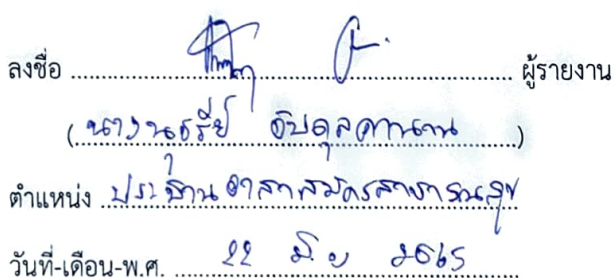 ลงชื่อ ........................ ผู้รายงาน
(นาง นุรีย์ อับดุล)
ตำแหน่ง ประธาน อาสาสมัครสาธารณสุข
วันที่-เดือน-พ.ศ. 22 มิ.ย 2565